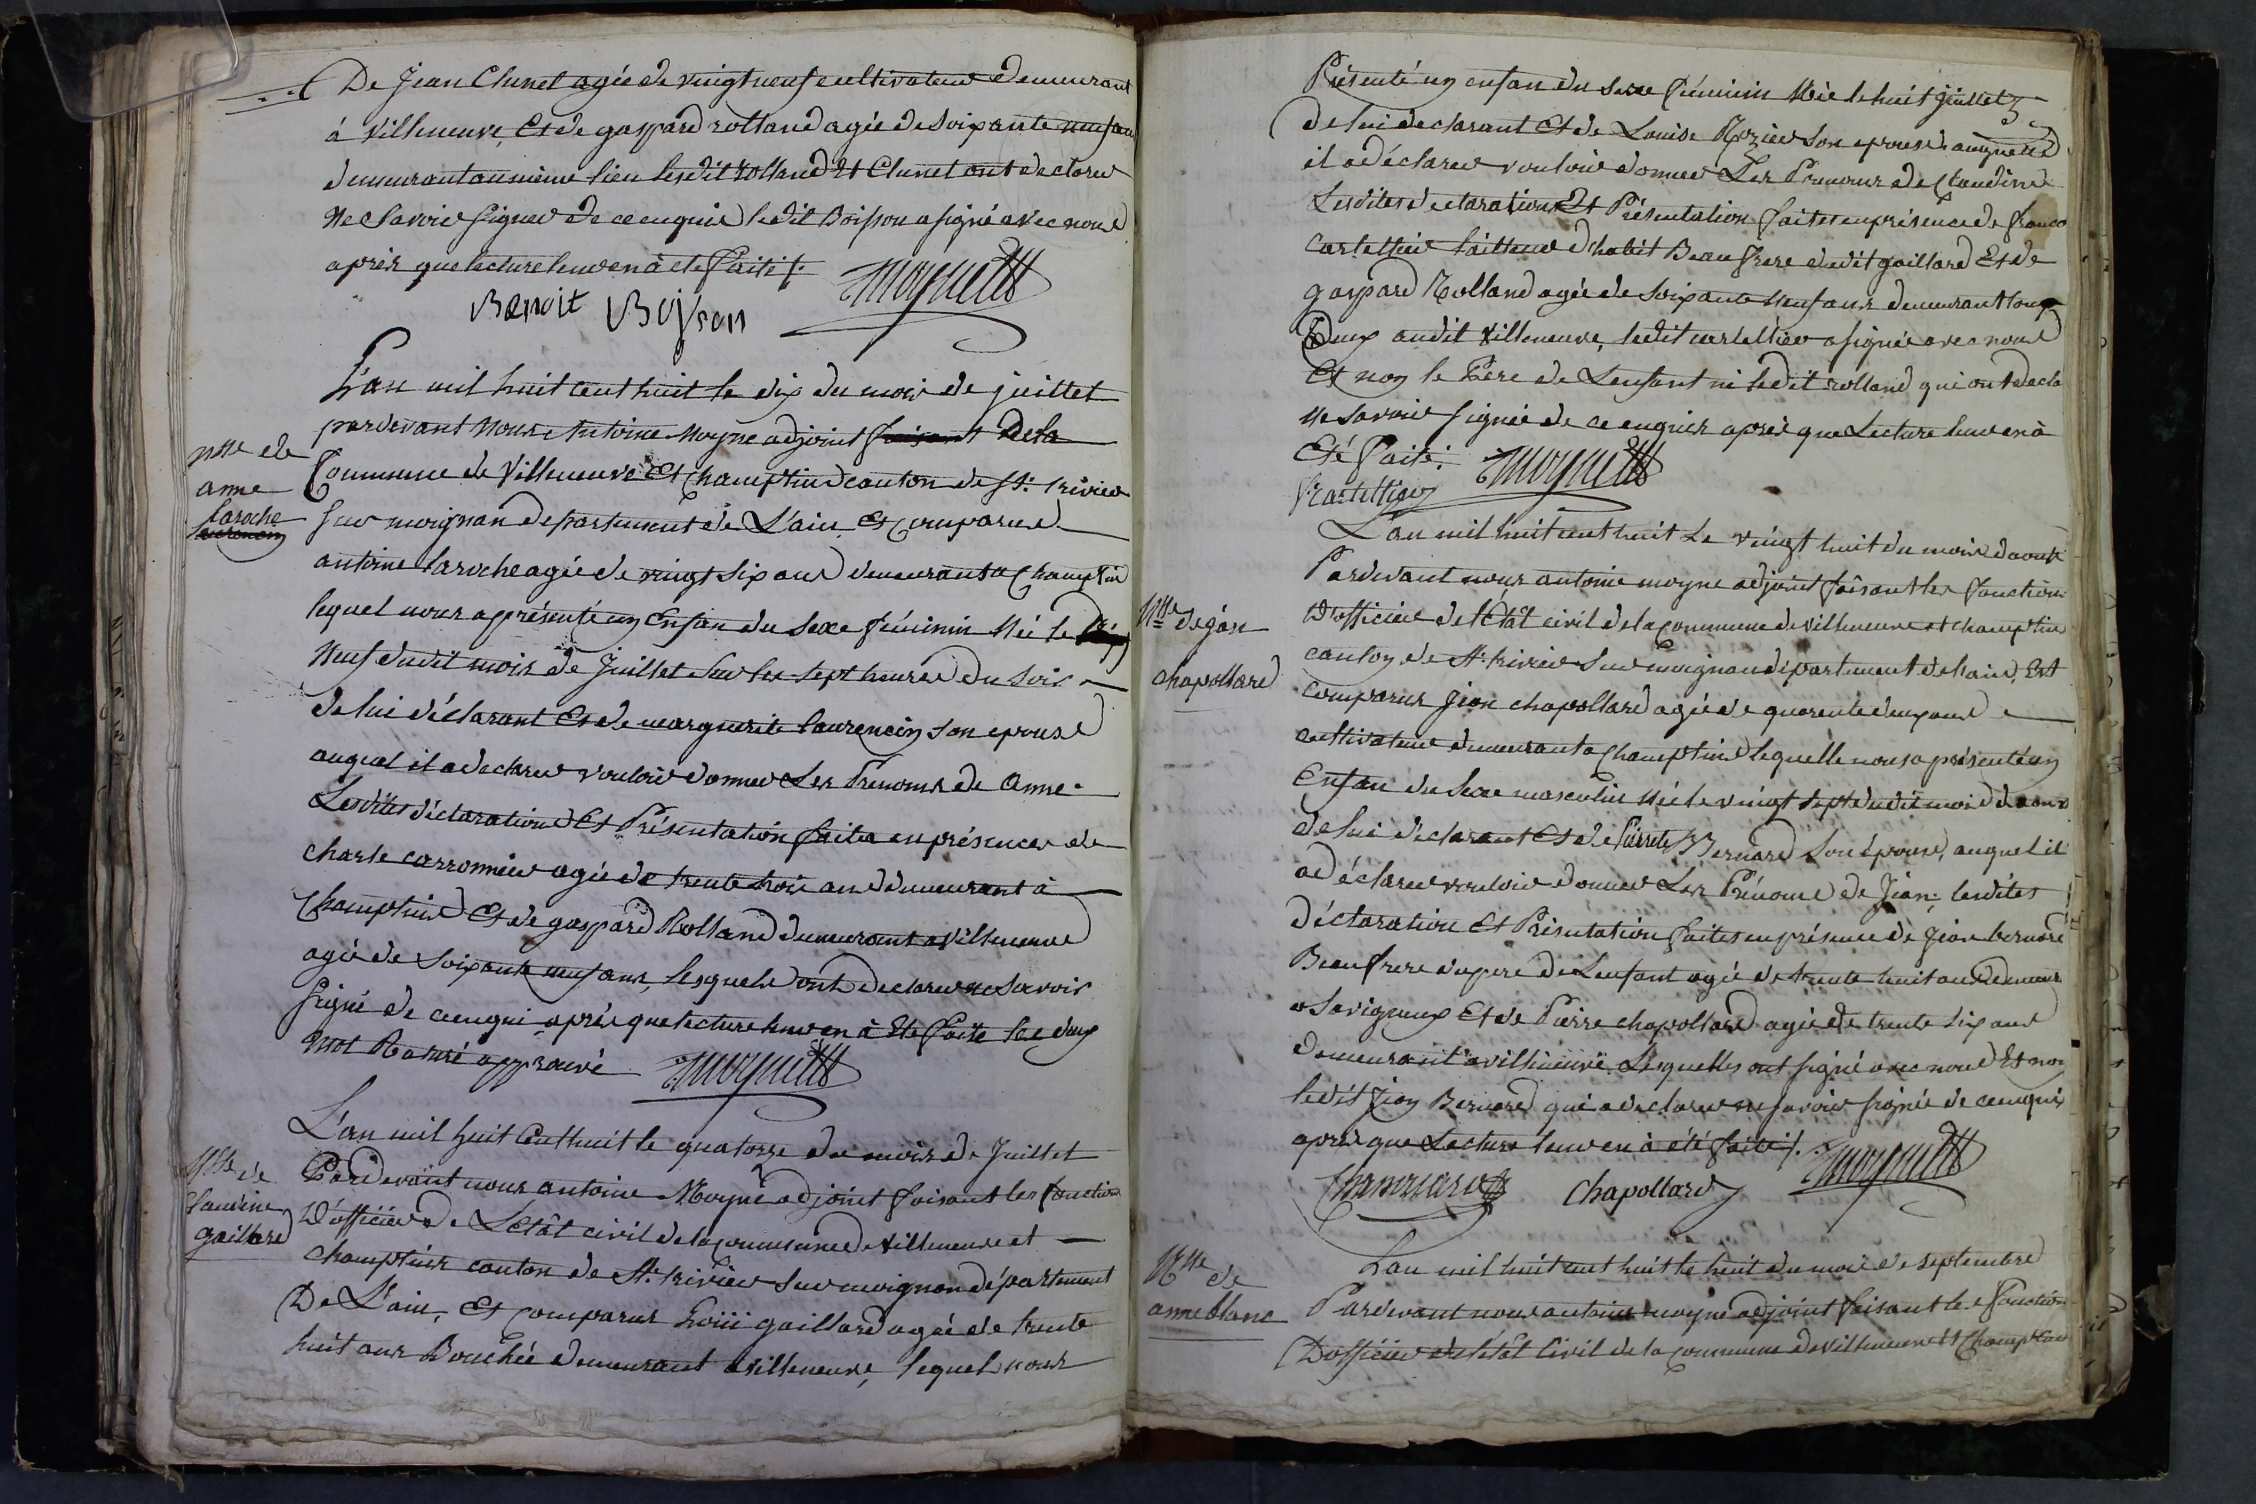 De Jean Clunet agée de vingt neuf cultivateur demeurant
à Villeneuve, Et de gaspard rolland agée de soixante neuf ans
demeurant au même lieu lesdit Rolland Et Clunet ont declarer
Ne Savoir Signer de ce enquis ledit Boisson a signé avec nous
après que lecture leur en à ete faite /.
Benoit Boisson
Moyne adt
L'an mil huit cent huit le dix du mois de juillet
pardevant Nous Antoine Moyne adjoint faisant Dela
nce de
anne
laroche
Commune de Villeneuve Et Champtein canton de St. trivier
sur moignan departement de L'ain, Est comparue
antoine laroche agée de vingt six ans demeurant a Champtein
lequel nous a présenté un Enfan du Sexe féminin Née le
Neuf dudit mois de Juillet Sur les sept heures du Soir
de lui déclarant Et de marguerite laurencin son epouse
auquel il a declarer vouloir donner Les Prenoms de Anne.
Lesdites déclaration Et Présentation faita en présences de
charle carronnier agée de trente trois ans demeurant à
Champtein Et de gaspard Rolland demeurant a Villeneuve
agée de Soixante neuf ans, lesquels ont declarer ne Savoir
signé de ce enqui après que lecture leur en à Ete faite les deux
mot Raturé approuvé
Moyne adt
L'an mil huit Cent huit le quatorze du mois de Juillet
Nce de
Claudine
gaillard
Pardevant nous antoine Moyne adjoint faisant les fonction
D'officier de L'etât civil de la commune de Villeneuve et
Champtein canton de St. trivier sur moignan département
De L'ain, Est comparus gaillard agée de trente
huit ans Bouchée demeurant a villeneuve, lequel nous
Présenté un enfan du Sexe féminin Née le huit juillet
de lui declarant Et de Louise Rozier Son epouse auquelle
il a déclarer vouloir donner Les Prenoms de Claudine
Lesdites declaration Et Présentation faites en présence de franco
Cartellier tailleur d'habit Beau frere dudit gaillard Et de
gaspard Rolland agée de Soixante Neuf ans demeurant tous
Deux audit Villeneuve, ledit cartellier a signée avec nous
Et non le Pere de Lenfant ni ledit rolland qui ont decla
Ne Savoir Signée de ce enquis après que Lecture leur en à
Eté faite.
Moyne adt
F Cartellier
L'an mil huit cent huit Le vingt huit du mois daoust
Pardevant nous antoine moyne adjoint faisant les fonction
Nce de jan
chapollard
D'officier de l'Etât civil de la commune de villeneuve et champtein
canton de St. trivier Sur moignan département de lain, Est
comparus Jean chapollard agée de quarente deux ans
cultivateur demeurant a Champtein lequelle nous a présenté un
Enfan du Sexe masculin Née le vingt sept dudit mois de aous
de lui declarant Et de Pierrette Bernard Son épouse, auquel il
a déclarer vouloir donner Les Prénoms de Jean. lesdites
déclaration Et Présentation faites en présence de Jean bernard
Beau frere du pere de Lenfant agée de trente huit ans demeur
a Savigneux Et de Pierre chapollard agée de trente six ans
demeurant a villeneuve Lesquelles ont signé avec nous Et non
ledit Jean Bernard qui a declarer ne savoir signée de ce enquis
après que Lecture leur en à été faite /.
chapollard
Moyne adt
L'an mil huit cent huit le huit du mois de septembre
Nce de
anne blanc
Pardevant nous antoine moyne adjoint faisant les fonction
D'officier de l'étât Civil de la commune de villeneuve Et Champtein